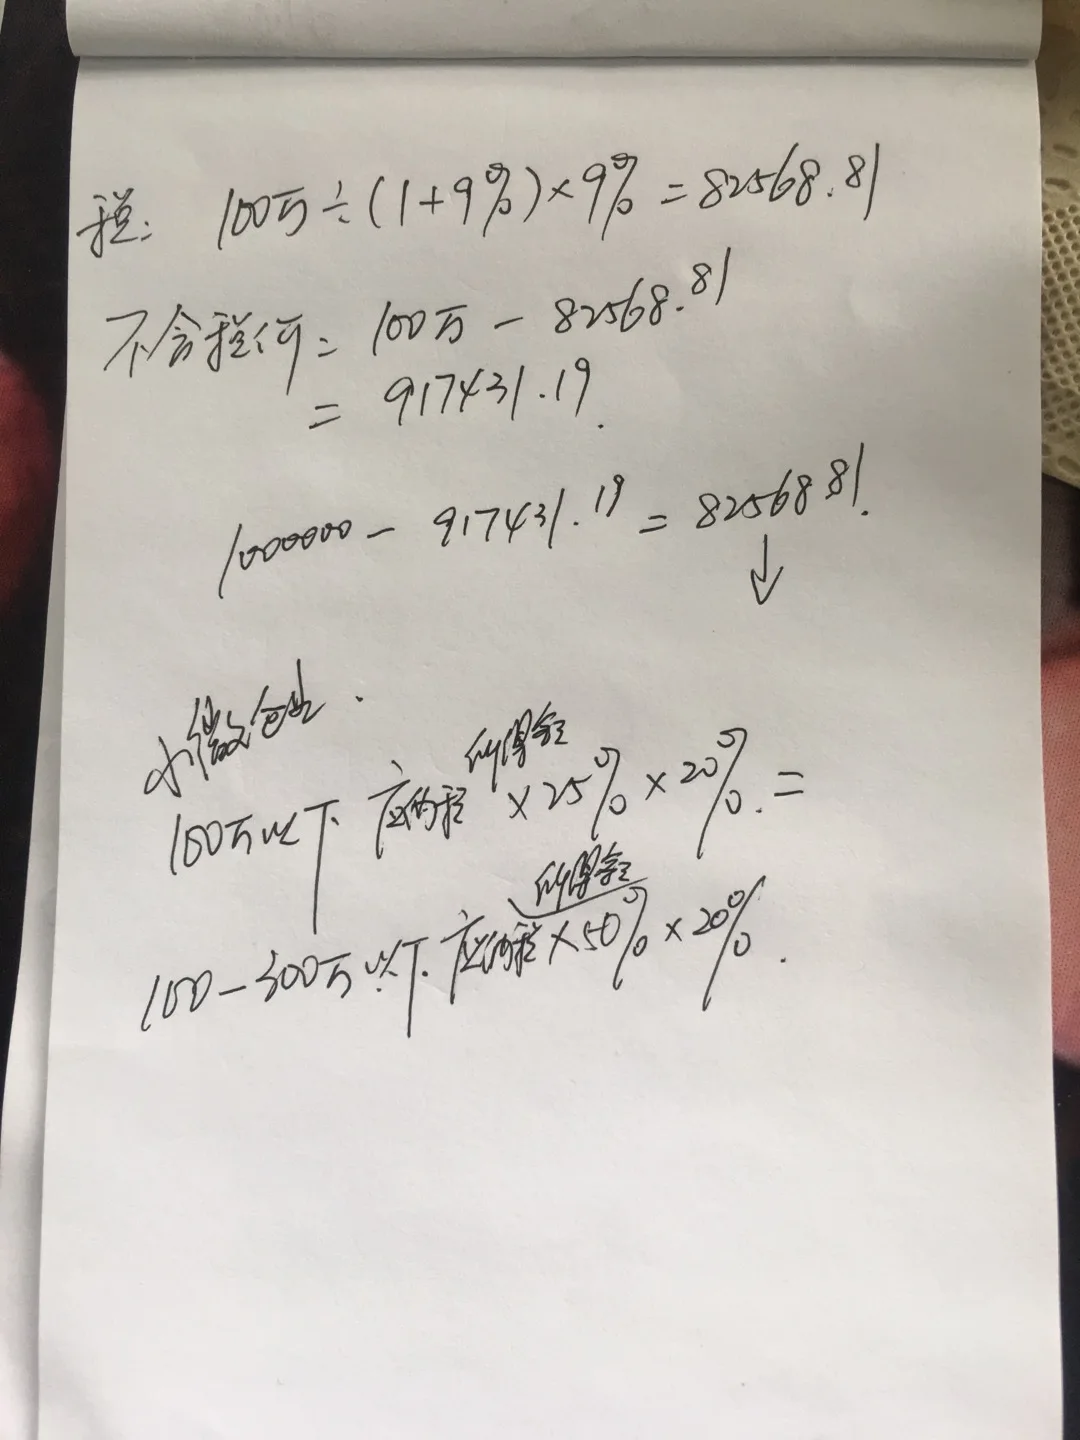 税: 100万÷(1+9%)×9%=82568.81
不含税价=100万-82568.81
=917431.19.
1000000-917431.19=82568.81.
小微企业.
100万以下 应纳税所得额×25%×20%.=
100-300万以下.应纳税所得额×50%×20%.